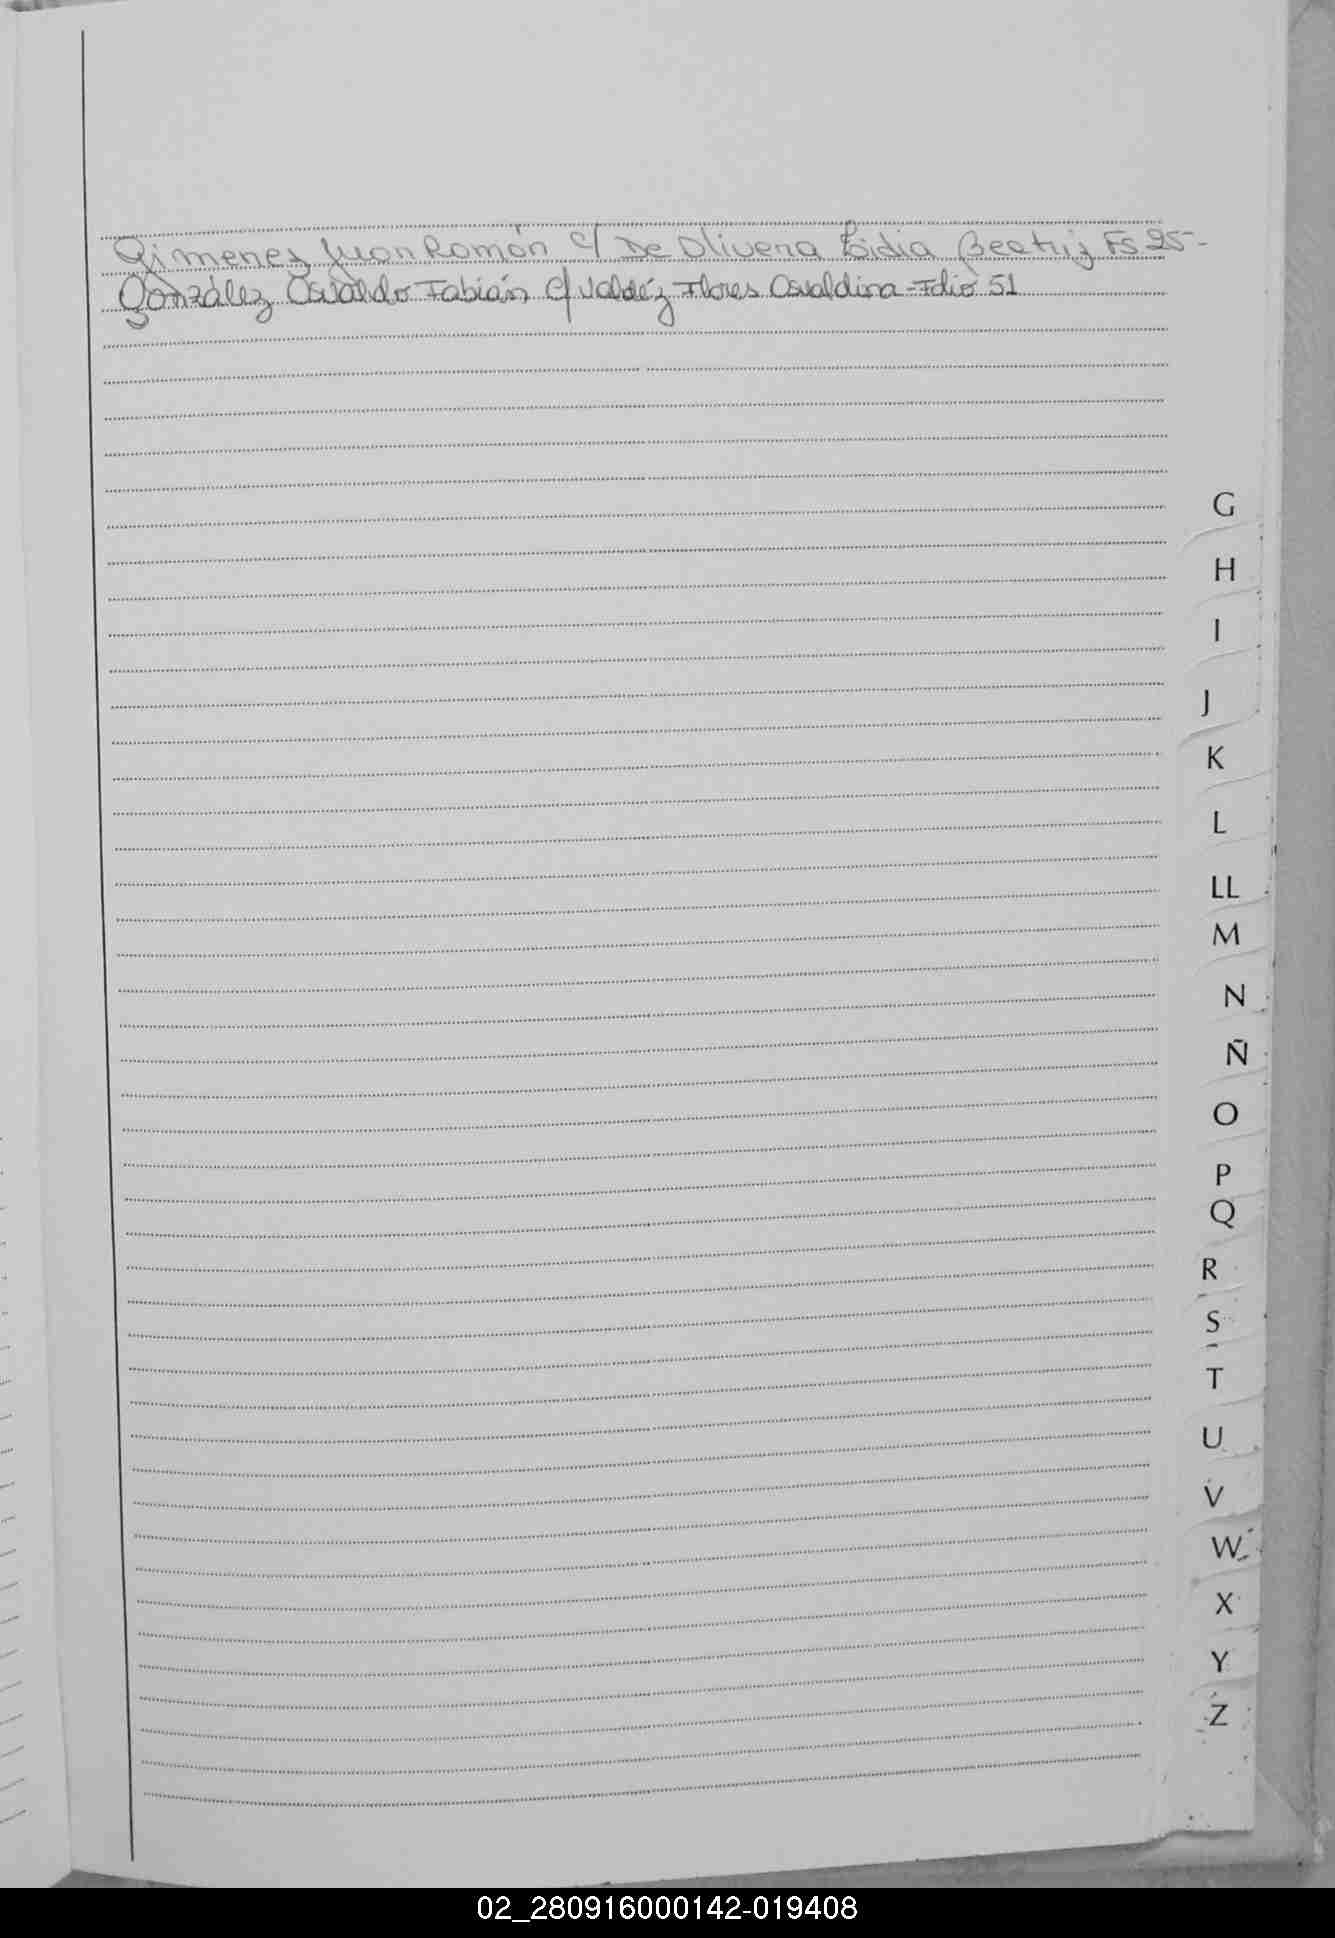 Gimenez Juan Ramón c/ De Olivera Lidia Beatriz Fs 25-
González Osvaldo Fabián c/ Valdéz Flores Osvaldina - Folio 51
G
H
I
J
K
L
LL
M
N
Ñ
O
P
Q
R
S
T
U
V
W
X
Y
Z
02_280916000142-019408